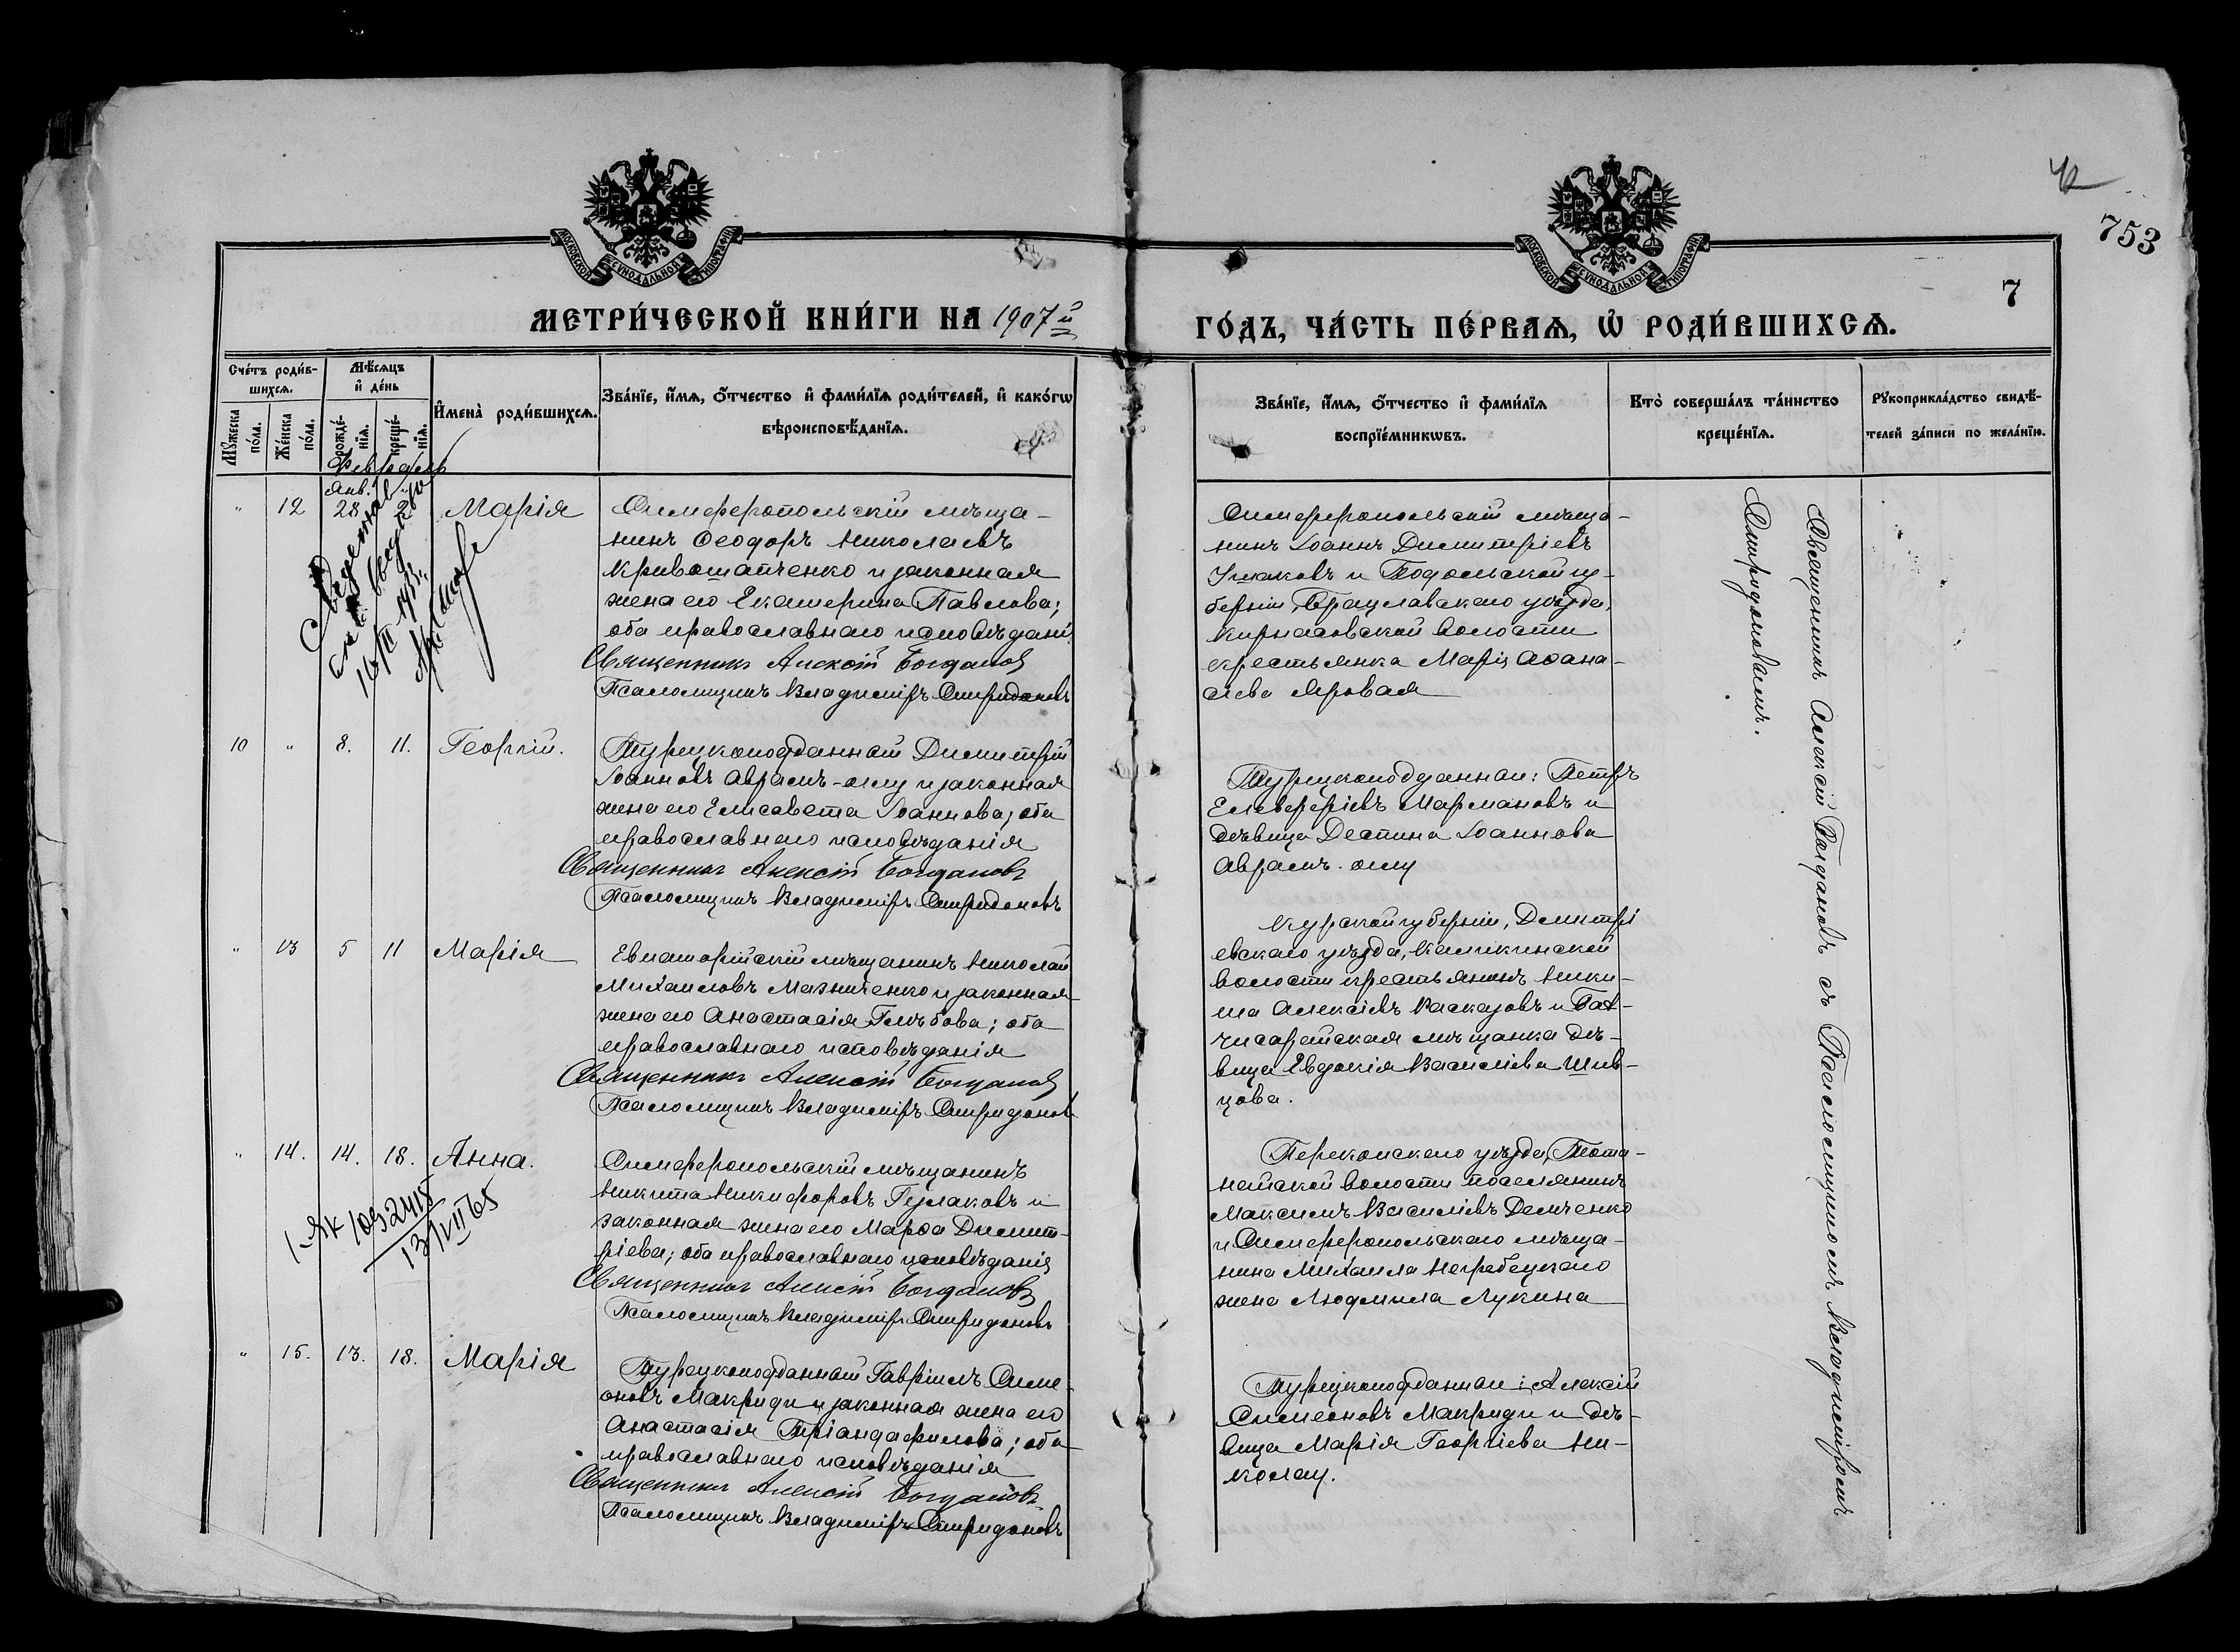 42
753
7
МОСКОВСКОЙ СѴНОДАЛЬНОЙ ТИПОГРАФІИ
МОСКОВСКОЙ СѴНОДАЛЬНОЙ ТИПОГРАФІИ
МЕТРИ́ЧЕСКОЙ КНИ́ГИ НА 1907й
ГО́ДЪ, ЧА́СТЬ ПЕ́РВАѦ, Ѡ҆ РОДИ́ВШИХСѦ.
Сче́тъ роди́в-
шихсѧ.
Мꙋжеска по́ла.
Же́нска по́ла.
Мѣ́сѧцъ
и҆ де́нь
рожде́-
нїѧ.
креще́-
нїѧ.
И҆мена̀ роди́вшихсѧ.
Зва́нїе, и҆́мѧ, ѻ҆́тчество и҆ фами́лїѧ роди́телей, и҆ како́гѡ
вѣроисповѣ́данїѧ.
Зва́нїе, и҆́мѧ, ѻ҆́тчество и҆ фами́лїѧ
воспрїе́мникѡвъ.
Кто̀ соверша́лъ та́инство
креще́нїѧ.
Рꙋкоприкла́дство свидѣ́-
телей за́писи по жела́нїю.
Февраль
Янв.
" 12 28 2 Марія
Симферопольскій мѣща-
нинъ Ѳеодоръ Николаевъ
Кривошапченко и законная
жена его Екатерина Павлова;
оба православнаго исповѣдані
Священникъ Алексій Богданов
Псаломщикъ Владиміръ Спиридоновъ
Симферопольскій мѣща-
нинъ Іоаннъ Димитріевъ
Ушаковъ и Подольской гу-
берніи, Брацлавскаго уѣзда,
Кирнасовской волости
крестьянка Марія Аѳана-
сіева Яровая
10 " 8. 11. Георгій.
Турецкоподданный Димитрій
Іоанновъ Аврамъ-оглу и законная
жена его Елисавета Іоаннова; оба
православнаго исповѣданія
Священникъ Алексій Богдановъ
Псаломщикъ Владиміръ Спиридоновъ
Турецкоподданные: Петръ
Елевферіевъ Мармановъ и
дѣвица Деспина Іоаннова
Аврамъ-оглу
" 13 5 11 Марія
Евпаторійскій мѣщанинъ Николай
Михаиловъ Мазниченко и законная
жена его Анастасія Глѣбова; оба
православнаго исповѣданія
Священникъ Алексій Богданов
Псаломщикъ Владиміръ Спиридонов
Курской губерніи, Дмитрі
евскаго уѣзда,
волости крестьянинъ Ники-
та Алексіевъ Васказовъ и Бах-
чисарайская мѣщанка дѣ-
вица Евдокія Василіева Шев-
цова.
" 14. 14. 18. Анна.
1 ЯК 1092415
13/VII 65
Симферопольскій мѣщанинъ
Никита Никифоровъ Гулаковъ и
законная жена его Марѳа Димит-
ріева; оба православнаго исповѣданія
Священникъ Алексій Богдановъ
Псаломщикъ Владиміръ Спиридоновъ
Перекопскаго уѣзда,
волости поселянинъ
Максимъ Василіевъ Демченко
и Симферопольскаго мѣща-
нина Михаила Негребецкаго
жена Людмила Лукина
" 15. 13. 18. Марія
Турецкоподданный Гавріилъ Симе-
оновъ Макриди и законная жена его
Анастасія Тріандафилова; оба
православнаго исповѣданія
Священникъ Алексій Богдановъ
Псаломщикъ Владиміръ Спиридоновъ
Турецкоподданные: Алексій
Симеоновъ Макриди и дѣ-
вица Марія Георгіева Ни-
колау.
Священникъ Алексій Богдановъ съ Псаломщикомъ Владиміромъ
Спиридоновымъ.